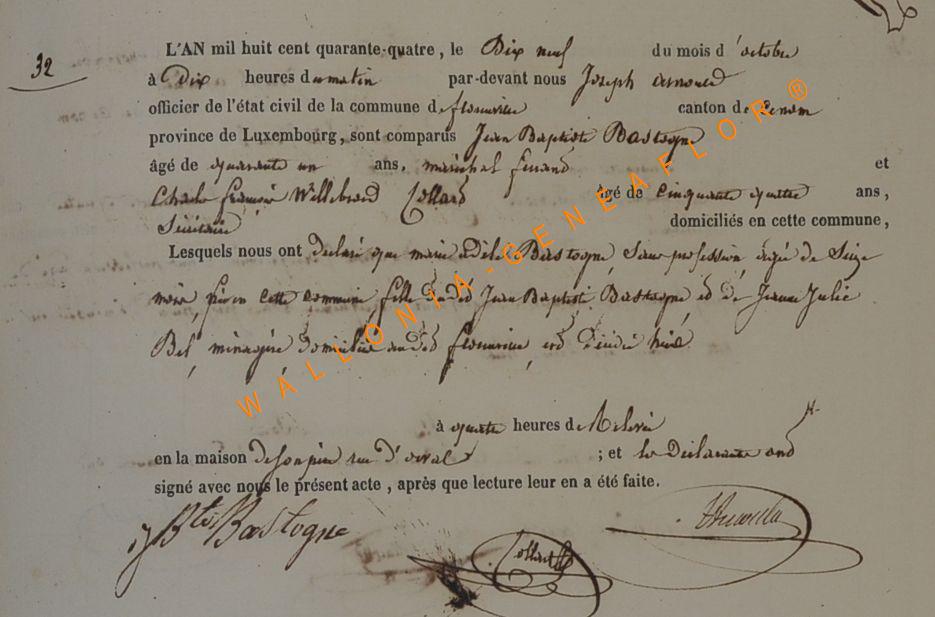 32
L'AN mil huit cent quarante-quatre, le Dix neuf du mois d'octobre
à Dix heures du matin par-devant nous Joseph Arnould
officier de l'état civil de la commune de florenville canton de
province de Luxembourg, sont comparus Jean Baptiste Bastogne
âgé de quarante un ans, maréchal ferrand et
Charles françois Willebrord Collard âgé de cinquante quatre ans,
Sécrétaire domiciliés en cette commune,
Lesquels nous ont declaré que marie adèle Bastogne, Sans profession, agée de Seize
mois, née en cette commune fille du dit Jean Baptiste Bastogne et de Jeanne Julie
ménagère domiciliée audit florenville, est décédée hier
à quatre heures de Relevée
en la maison de son père rue d'orval ; et les Déclarants ont
signé avec nous le présent acte, après que lecture leur en a été faite.
J Bte Bastogne
Collard
WALLONIA-GENEAFLOR®